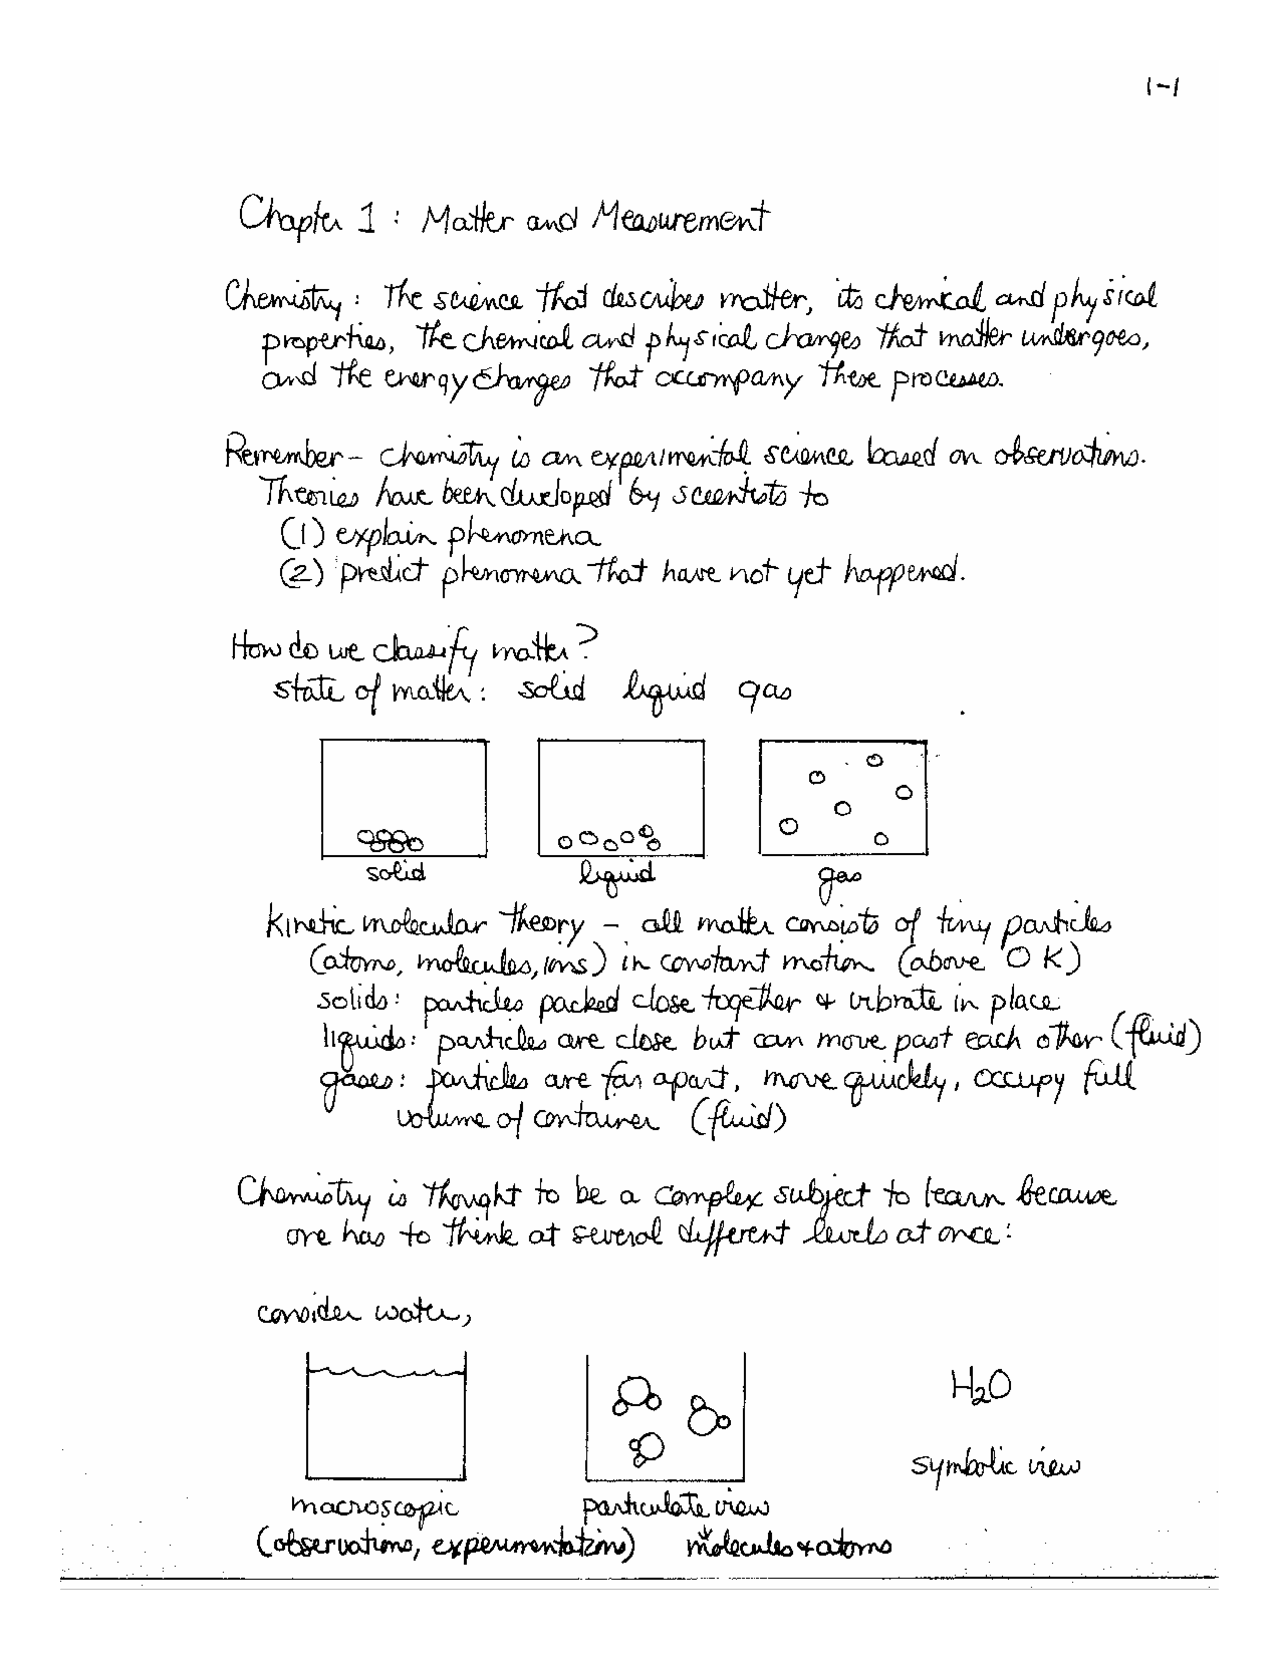 1-1
Chapter 1 : Matter and Measurement
Chemistry: The science that describes matter, its chemical and physical
properties, the chemical and physical changes that matter undergoes,
and the energy changes that accompany these processes.
Remember - chemistry is an experimental science based on observations.
Theories have been developed by scientists to
(1) explain phenomena
(2) predict phenomena that have not yet happened.
How do we classify matter?
state of matter: solid liquid gas
solid liquid gas
Kinetic molecular theory - all matter consists of tiny particles
(atoms, molecules, ions) in constant motion (above 0 K)
solids: particles packed close together & vibrate in place
liquids: particles are close but can move past each other (fluid)
gases: particles are far apart, move quickly, occupy full
volume of container (fluid)
Chemistry is thought to be a complex subject to learn because
one has to think at several different levels at once:
consider water,
H₂O
symbolic view
macroscopic particulate view
(observations, experimentations) molecules & atoms